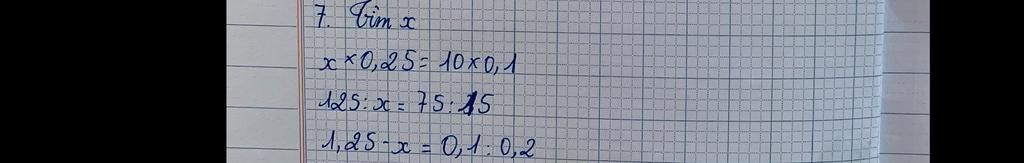 7. Tìm x
x × 0,25 = 10 × 0,1
125 : x = 75 : 15
1,25 - x = 0,1 : 0,2